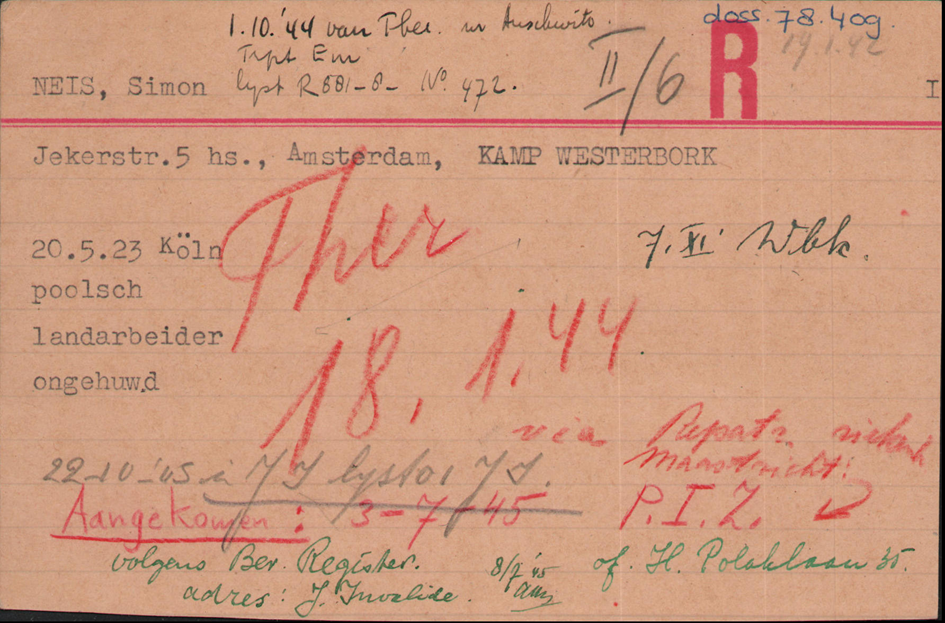 1.10.'44 van Ther. in Auschwits.
doss. 78.409.
19.1.42
Trpt Em
II/6
R
NEIS, Simon
lyst R 881-8- No. 472.
I
Jekerstr.5 hs., Amsterdam, KAMP WESTERBORK
Ther
20.5.23 Köln
7.XI' Wbk.
poolsch
landarbeider
18.1.44
ongehuwd
via Repatr.
Maastricht!
22-10-'45 JI lyst 01 JI.
Aangekomen: 3-7-45
P.I.Z.
volgens Bev. Register.
8/9 '45
of. H. Polaklaan 35.
adres: J. Invalide.